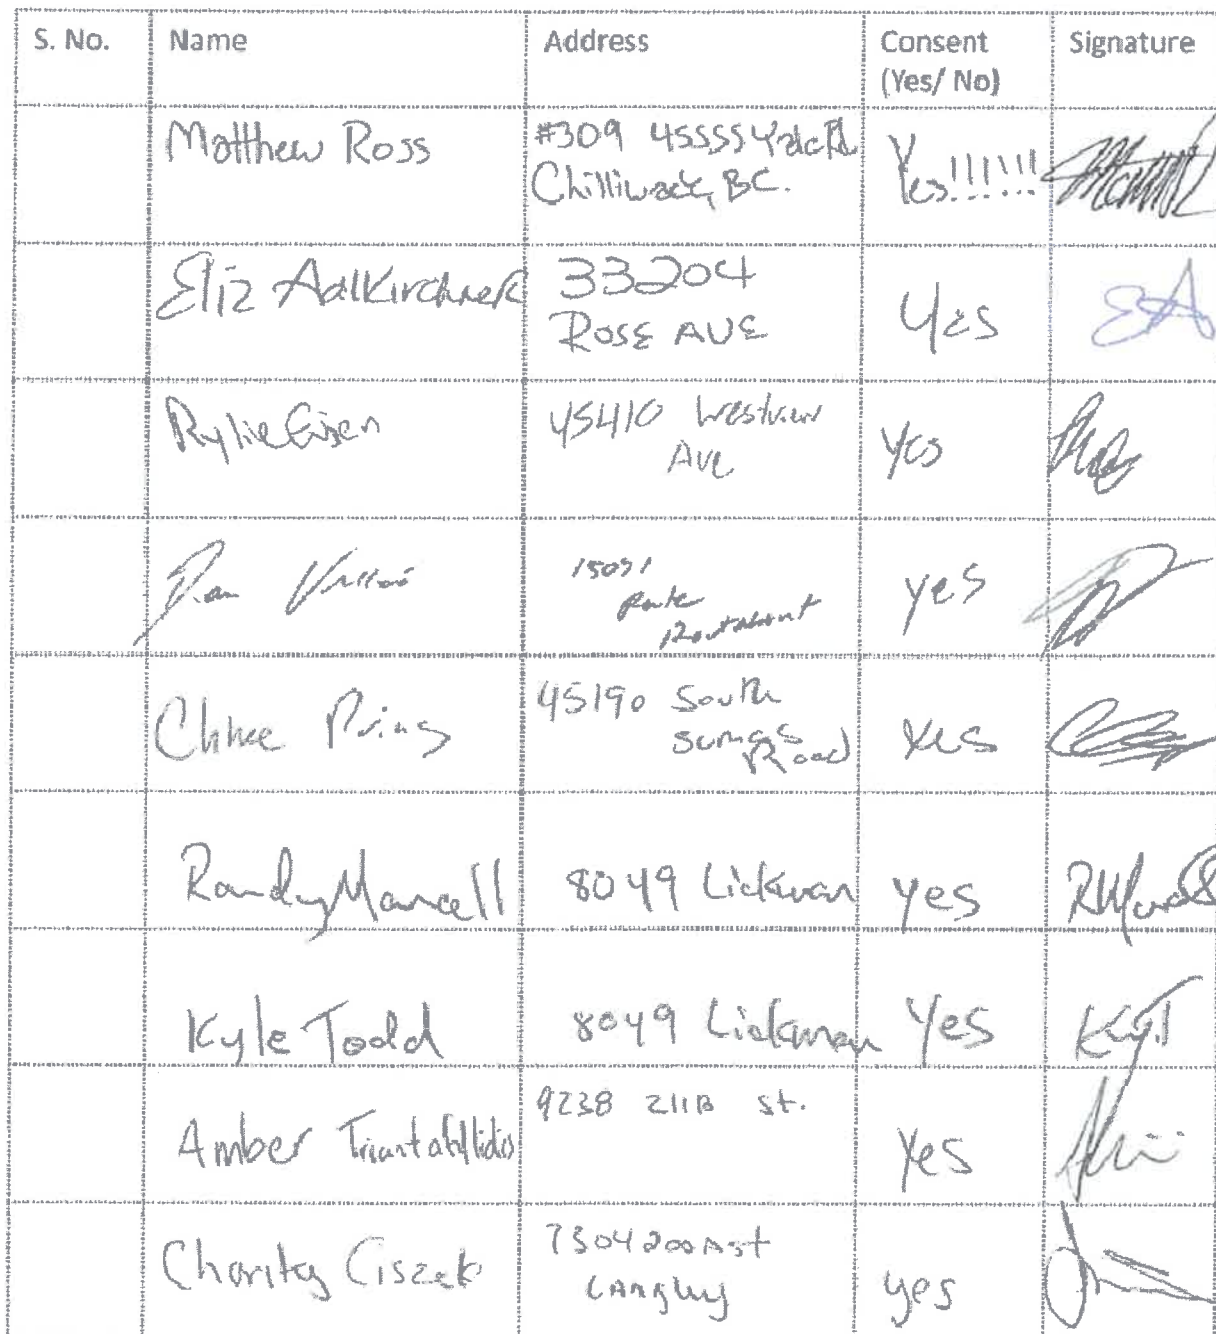 S. No. Name Address Consent Signature
(Yes/ No)
Matthew Ross #309 45555 Yale Rd Yes!!!!!!
Chilliwack, BC.
Eliz Aalkirchner 33204 Yes
ROSE AVE
Rylie 45410 Westview Yes
Ave
15071 yes
Prins 45190 South Yes
Sumas
Road
Randy Marcell 8049 Lickman yes
Kyle Todd 8049 Lickman Yes
Amber Triantafillidis 9238 211B st. Yes
Charity Ciszek 7304 200A st yes
Langley